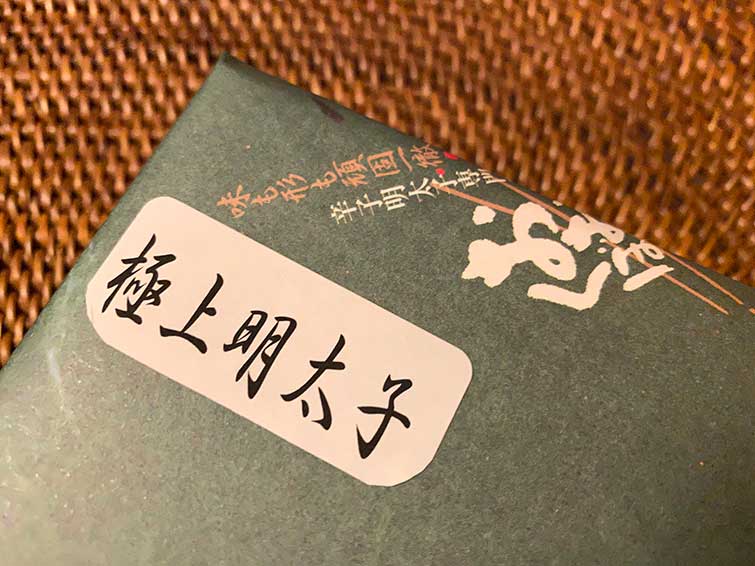 味も形も頑固一徹
辛子明太子専門
極上明太子